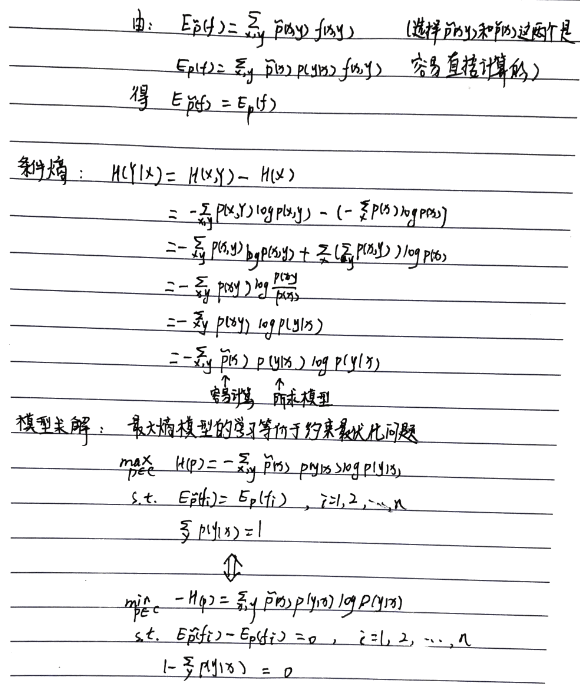 由: E_p̃(f) = Σ_{x,y} p̃(x,y) f(x,y) (选择p̃(x,y)和p̃(x)这两个是
E_p(f) = Σ_{x,y} p̃(x) p(y|x) f(x,y) 容易直接计算的)
得 E_p̃(f) = E_p(f)
条件熵: H(Y|X) = H(X,Y) - H(X)
= -Σ_{x,y} p(x,y) log p(x,y) - (-Σ_x p(x) log p(x))
= -Σ_{x,y} p(x,y) log p(x,y) + Σ_x (Σ_y p(x,y)) log p(x)
= -Σ_{x,y} p(x,y) log p(x,y)/p(x)
= -Σ_{x,y} p(x,y) log p(y|x)
= -Σ_{x,y} p̃(x) p(y|x) log p(y|x)
↑ ↑
容易计算 所求模型
模型求解: 最大熵模型的学习等价于约束最优化问题
max_{p∈C} H(p) = -Σ_{x,y} p̃(x) p(y|x) log p(y|x)
s.t. E_p̃(f_i) = E_p(f_i) , i=1,2,…,n
Σ_y p(y|x) = 1
⇕
min_{p∈C} -H(p) = Σ_{x,y} p̃(x) p(y|x) log p(y|x)
s.t. E_p̃(f_i) - E_p(f_i) = 0 , i=1,2,…,n
1 - Σ_y p(y|x) = 0